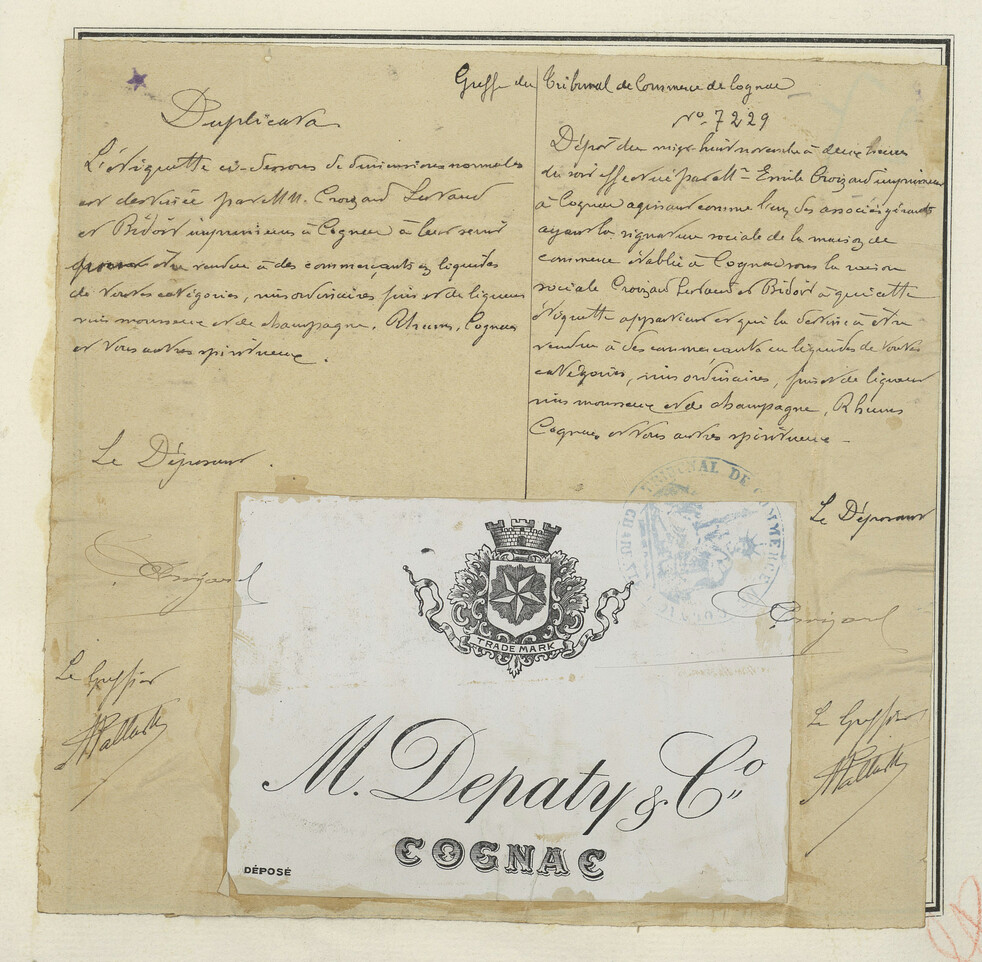 Greffe du Tribunal de Commerce de Cognac
Nº 7229
Duplicata
L'étiquette ci-dessous de dimensions normales
est destinée par MM. Croizard Lertaud
et Bidoit imprimeurs à Cognac à leur servir
être vendue à des commerçants en liquides
de toutes catégories, vins ordinaires fins et de liqueur
vins mousseux et de champagne, Rhums, Cognacs
et tous autres spiritueux.
Le Déposant.
Croizard
Le Greffier
Dépôt du vingt huit à deux heures
du soir effectué par Mr Emile Croizard imprimeur
à Cognac agissant comme l'un des associés gérants
ayant la signature sociale de la maison de
commerce établie à Cognac sous la raison
sociale Croizard Lertaud et Bidoit à qui cette
étiquette appartient et qui la destine à être
vendue à des commerçants en liquides de toutes
catégories, vins ordinaires, fins et de liqueur
vins mousseux et de champagne, Rhums
Cognac, et tous autres spiritueux.
Le Déposant
Croizard
Le Greffier
TRIBUNAL DE COMMERCE
TRADE MARK
M. Depaty & Cº
COGNAC
DÉPOSÉ